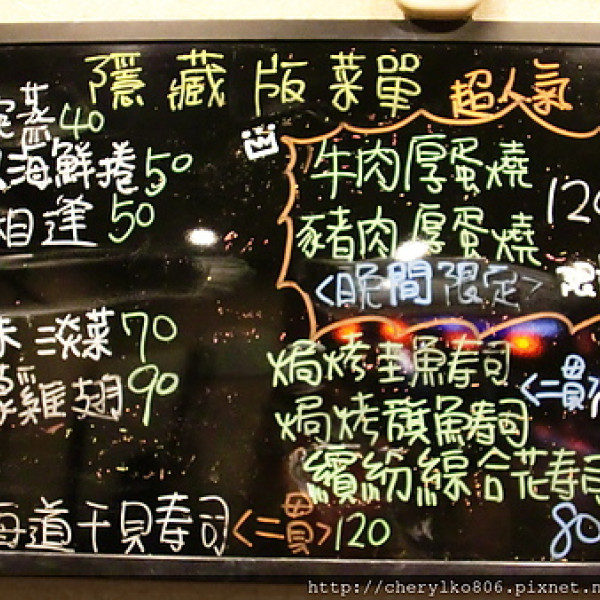 隱藏版菜單 超人氣
蒸 40
海鮮捲 50
相逢 50
淡菜 70
雞翅 90
海道干貝寿司 <二貫> 120
牛肉厚蛋燒
豬肉厚蛋燒
120
<晚間限定> 限
焗烤圭魚寿司
<二貫>
焗烤旗魚寿司
繽紛綜合花寿司
80
http://cherylko806.pixnet.n